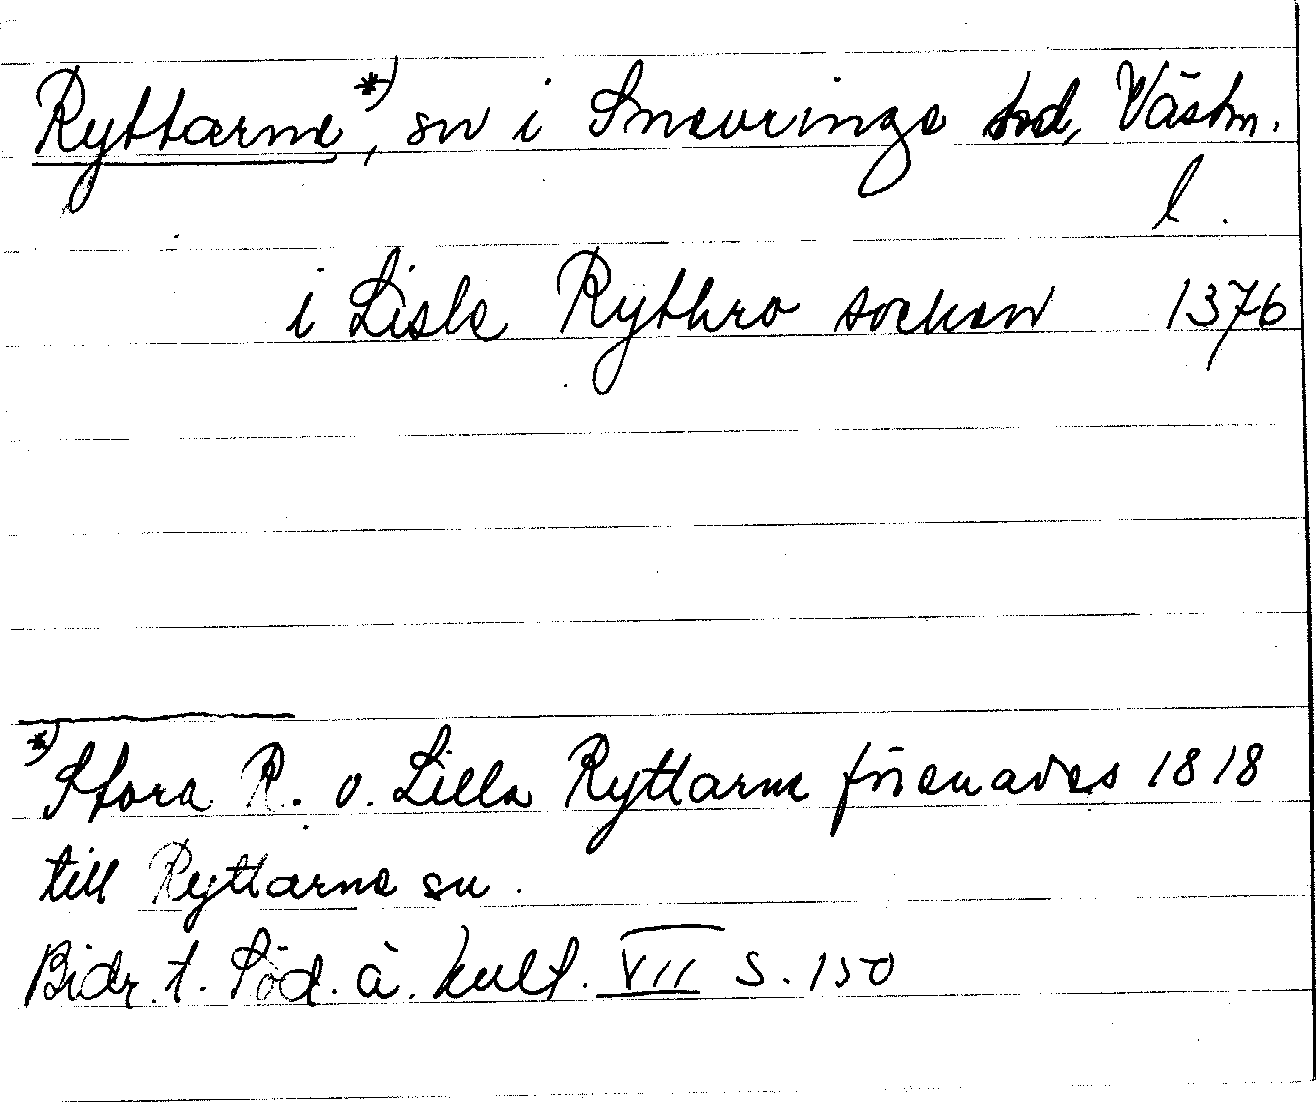 Ryttarne*), sn i Snevringe hd, Västm.
l.
i Lisle Rythro sochen 1376
*) Stora R. o. Lilla Ryttarne förenades 1818
till Ryttarne sn.
Bidr. t. Söd. ä. kult. VII s. 150